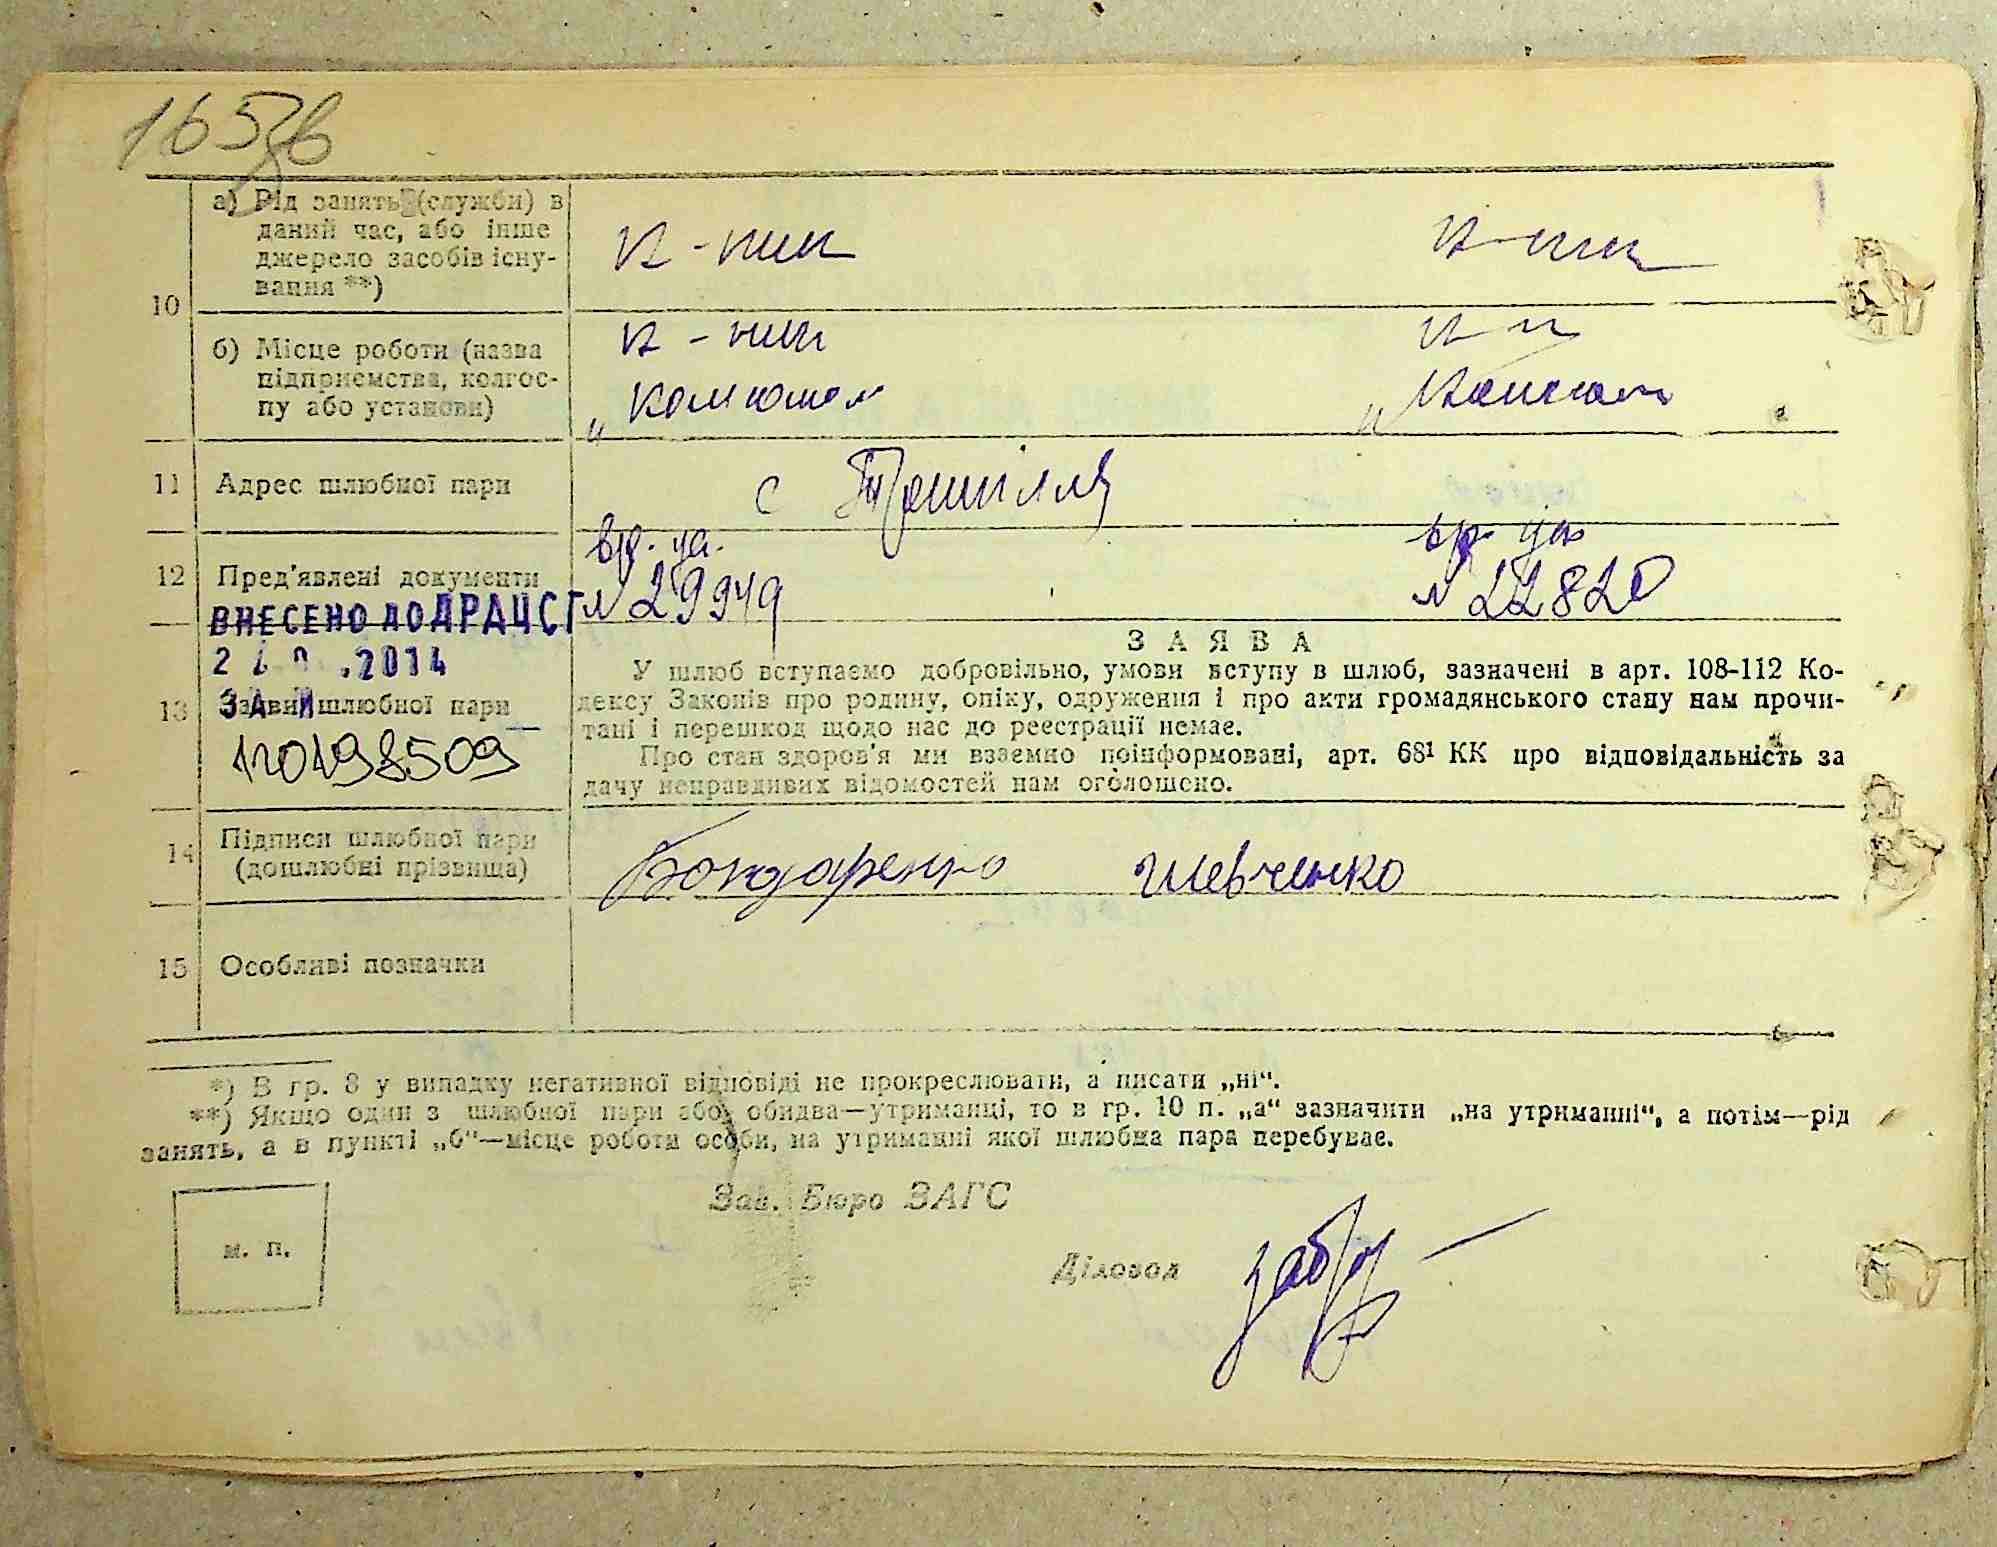 165
а) Рід занять (служби) в
даний час, або інше
джерело засобів існу-
вання **)
к-ник
к-ник
10
б) Місце роботи (назва
підприємства, колгос-
пу або установи)
к-ник
к-п
11
Адрес шлюбної пари
с
12
Пред'явлені документи
№ 29949
№ 22820
ВНЕСЕНО ДО ДРАЦСГ
.2014
13
Заяви шлюбної пари
ЗАЯВА
У шлюб вступаємо добровільно, умови вступу в шлюб, зазначені в арт. 108-112 Ко-
дексу Законів про родину, опіку, одруження і про акти громадянського стану нам прочи-
тані і перешкод щодо нас до реестрації немає.
Про стан здоров'я ми взаємно поінформовані, арт. 68¹ КК про відповідальність за
дачу неправдивих відомостей нам оголошено.
14
Підписи шлюбної пари
(дошлюбні прізвища)
Бондаренко
Шевченко
15
Особливі позначки
*) В гр. 8 у випадку негативної відповіді не прокреслювати, а писати „ні“.
**) Якщо один з шлюбної пари або обидва—утриманці, то в гр. 10 п. „а“ зазначити „на утриманні“, а потім—рід
занять, а в пункті „б“—місце роботи особи, на утриманні якої шлюбна пара перебуває.
м. п.
Зав. Бюро ЗАГС
Діловод